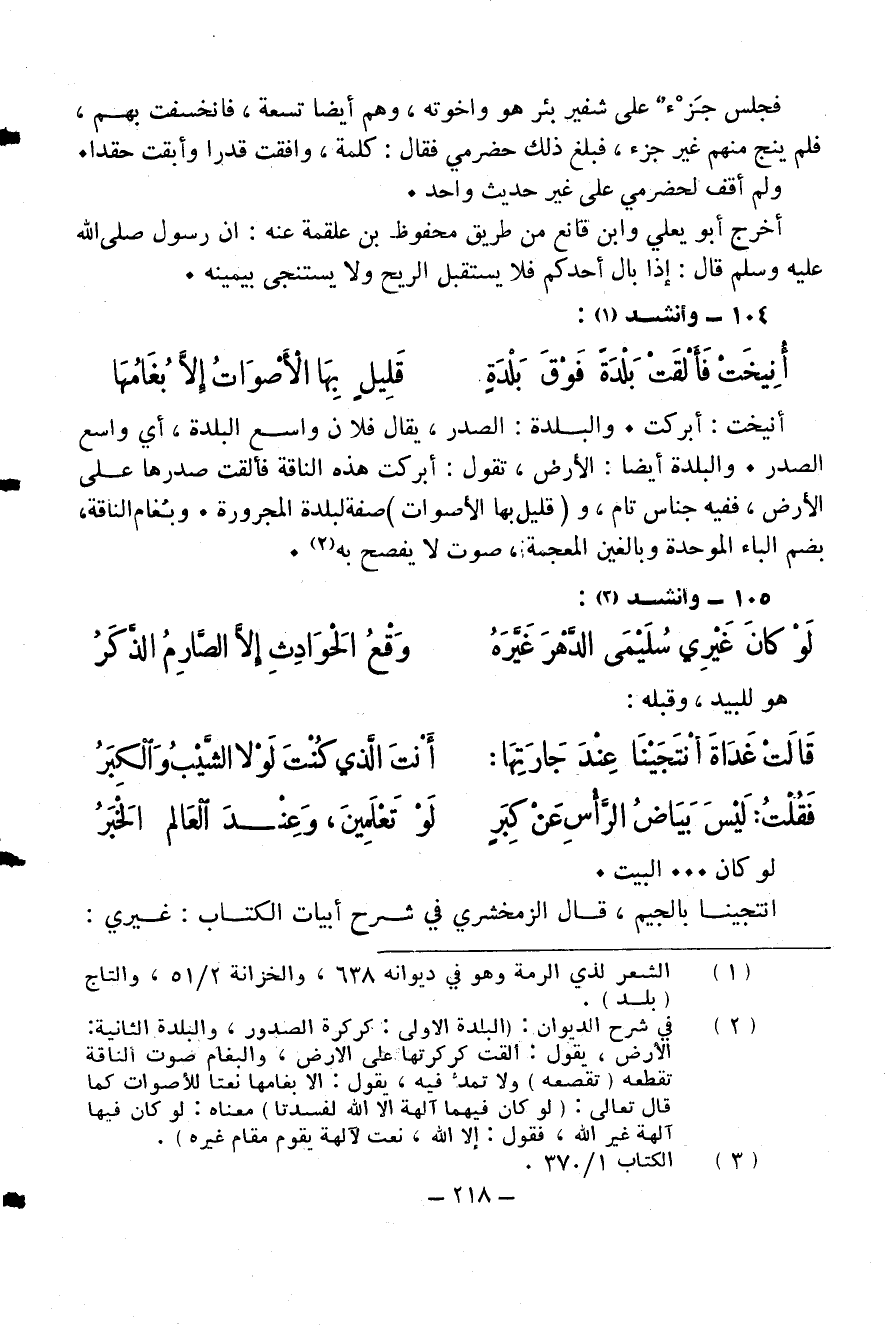 فجلس جَزْءٌ على شفير بئر هو واخوته ، وهم أيضا تسعة ، فانخسفت بهـم ،
فلم ينج منهم غير جزء ، فبلغ ذلك حضرمي فقال : كلمة ، وافقت قدرا وأبقت حقدا .
ولم أقف لحضرمي على غير حديث واحد .
أخرج أبو يعلي وابن قانع من طريق محفوظ بن علقمة عنه : ان رسول صلى الله
عليه وسلم قال : إذا بال أحدكم فلا يستقبل الريح ولا يستنجى بيمينه .
١٠٤ – وأنشـد (١) :
أُنِيخَتْ فَأَلْقَتْ بَلْدَةً فَوْقَ بَلْدَةٍ قَلِيلٍ بِهَا الْأَصْوَاتُ إِلاَّ بُغَامُهَا
أنيخت : أبركت . والبـلدة : الصدر ، يقال فلان واسـع البلدة ، أي واسع
الصدر . والبلدة أيضا : الأرض ، تقول : أبركت هذه الناقة فألقت صدرها علـى
الأرض ، ففيه جناس تام ، و ( قليل بها الأصوات ) صفة لبلدة المجرورة . وبُغام الناقة،
بضم الباء الموحدة وبالغين المعجمة ، صوت لا يفصح به (٢) .
١٠٥ – وانشـد (٣) :
لَوْ كَانَ غَيْرِي سُلَيْمَى الدَّهْرَ غَيَّرَهُ وَقْعُ الْحَوَادِثِ إِلاَّ الصَّارِمُ الذَّكَرُ
هو للبيد ، وقبله :
قَالَتْ غَدَاةَ أنْتَجَيْنَا عِنْدَ جَارَتِهَا : أَنْتَ الَّذِي كُنْتَ لَوْلا الشَّيْبُ وَالْكِبَرُ
فَقُلْتُ : لَيْسَ بَيَاضُ الرَّأْسِ عَنْ كِبَرٍ لَوْ تَعْلَمِينَ ، وَعِنْـدَ الْعَالِمِ الْخَبَرُ
لو كان ... البيت .
انتجينـا بالجيم ، قـال الزمخشري في شـرح أبيات الكتـاب : غـيري :
( ١ ) الشعر لذي الرمة وهو في ديوانه ٦٣٨ ، والخزانة ٥١/٢ ، والتاج
( بلـد ) .
( ٢ ) في شرح الديوان : (البلدة الاولى : كركرة الصدور ، والبلدة الثانية:
الأرض ، يقول : القت كركرتها على الارض ، والبغام صوت الناقة
تقطعه ( تقصعه ) ولا تمده فيه ، يقول : الا بغامها نعتا للأصوات كما
قال تعالى : ( لو كان فيهما آلهة الا الله لفسدتا ) معناه : لو كان فيها
آلهة غير الله ، فقول : إلا الله ، نعت لآلهة يقوم مقام غيره ) .
( ٣ ) الكتاب ٣٧٠/١ .
– ٢١٨ –